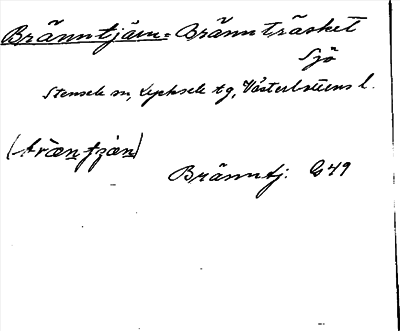 Bränntjärn = Brännträsket
Sjö
Stensele sn, Lycksele tg, Västerbottens l.
(bränn tjän)
Bränntj: G 49